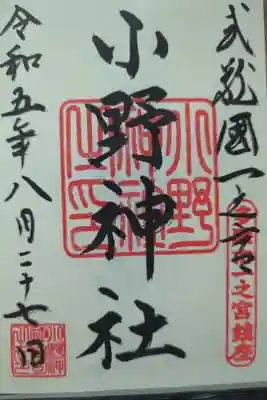 武蔵國一之宮
小野神社
令和五年八月二十七日
一之宮鎮座